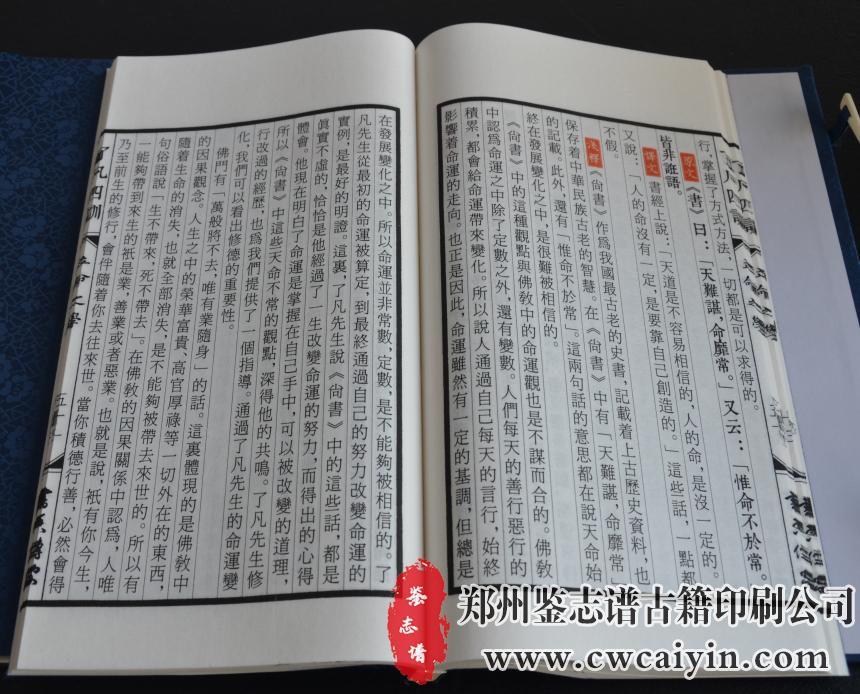 行，掌握了方式方法，一切都是可以求得的。
原文《書》曰：「天難諶，命靡常。」又云：「惟命不於常。」
皆非誑語。
譯文 書經上說：「天道是不容易相信的，人的命，是沒一定的。」
又說：「人的命沒有一定，是要靠自己創造的。」這些話，一點都
不假。
淺釋《尚書》作爲我國最古老的史書，記載着上古歷史資料，也
保存着中華民族古老的智慧。在《尚書》中有「天難諶，命靡常」
的記載。此外，還有「惟命不於常」。這兩句話的意思都在說天命始
終在發展變化之中，是很難被相信的。
《尚書》中的這種觀點與佛教中的命運觀也是不謀而合的。佛教
中認爲命運之中除了定數之外，還有變數。人們每天的善行惡行的
積累，都會給命運帶來變化。所以說人通過自己每天的言行，始終
影響着命運的走向。也正是因此，命運雖然有一定的基調，但總是
在發展變化之中。所以命運並非常數，定數，是不能夠被相信的。了
凡先生從最初的命運被算定，到最終通過自己的努力改變命運的
實例，是最好的明證。這裏，了凡先生說《尚書》中的這些話，都是
眞實不虛的，恰恰是他經過了一生改變命運的努力，而得出的心得
體會。他現在明白了命運是掌握在自己手中，可以被改變的道理，
所以《尚書》中這些天命不常的觀點，深得他的共鳴。了凡先生修
行改過的經歷，也爲我們提供了一個指導。通過了凡先生的命運變
化，我們可以看出修德的重要性。
佛門有「萬般將不去，唯有業隨身」的話。這裏體現的是佛教中
的因果觀念。人生之中的榮華富貴、高官厚祿等一切外在的東西，
隨着生命的消失，也就全部消失，是不能夠被帶去來世的。所以有
句俗語說「生不帶來，死不帶去」。在佛教的因果關係中認爲，人唯
一能夠帶到來生的衹是業，善業或者惡業。也就是說，衹有你今生，
乃至前生的修行，會伴隨着你去往來世。當你積德行善，必然會得
了凡四訓
立命之學
鉴志谱
郑州鉴志谱古籍印刷公司
www.cwcaiyin.com